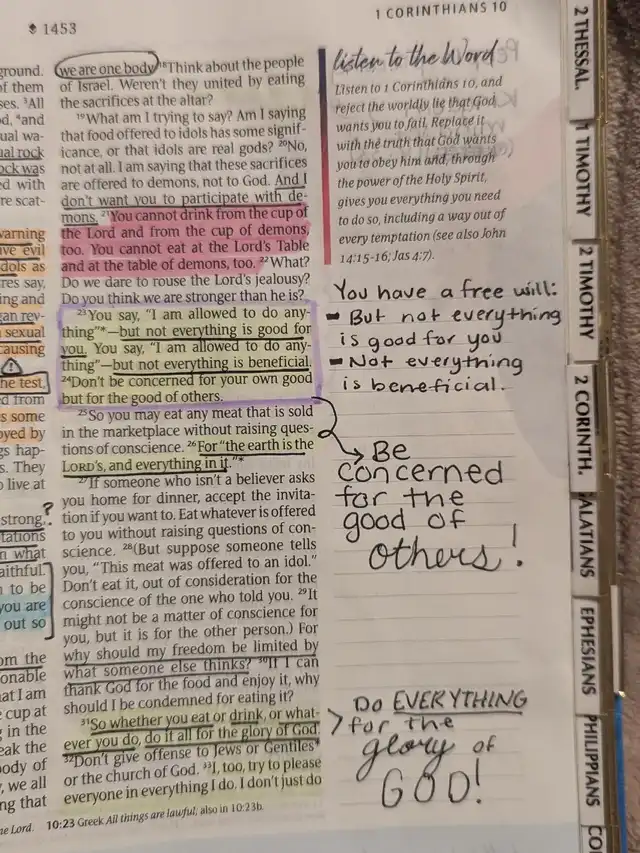 1453
1 CORINTHIANS 10
ground.
of them
ses. ³All
od, ⁴and
ual wa-
ual rock
ock was
ed with
re scat-
warning
ave evil
dols as
res say,
ing and
gan rev-
sexual
causing
he test,
ed from
s some
oyed by
gs hap-
s. They
o live at
strong,?
tations
n what
aithful.
n to be
you are
out so
om the
onable
at I am
e cup at
g in the
eak the
body of
, we all
ng that
we are one body. ¹⁸Think about the people
of Israel. Weren't they united by eating
the sacrifices at the altar?
¹⁹What am I trying to say? Am I saying
that food offered to idols has some signif-
icance, or that idols are real gods? ²⁰No,
not at all. I am saying that these sacrifices
are offered to demons, not to God. And I
don't want you to participate with de-
mons. ²¹You cannot drink from the cup of
the Lord and from the cup of demons,
too. You cannot eat at the Lord's Table
and at the table of demons, too. ²²What?
Do we dare to rouse the Lord's jealousy?
Do you think we are stronger than he is?
²³You say, "I am allowed to do any-
thing"*—but not everything is good for
you. You say, "I am allowed to do any-
thing"—but not everything is beneficial.
²⁴Don't be concerned for your own good
but for the good of others.
²⁵So you may eat any meat that is sold
in the marketplace without raising ques-
tions of conscience. ²⁶For "the earth is the
LORD's, and everything in it."*
²⁷If someone who isn't a believer asks
you home for dinner, accept the invita-
tion if you want to. Eat whatever is offered
to you without raising questions of con-
science. ²⁸(But suppose someone tells
you, "This meat was offered to an idol."
Don't eat it, out of consideration for the
conscience of the one who told you. ²⁹It
might not be a matter of conscience for
you, but it is for the other person.) For
why should my freedom be limited by
what someone else thinks? ³⁰If I can
thank God for the food and enjoy it, why
should I be condemned for eating it?
³¹So whether you eat or drink, or what-
ever you do, do it all for the glory of God.
³²Don't give offense to Jews or Gentiles*
or the church of God. ³³I, too, try to please
everyone in everything I do. I don't just do
he Lord. 10:23 Greek All things are lawful; also in 10:23b.
listen to the Word
Listen to 1 Corinthians 10, and
reject the worldly lie that God
wants you to fail. Replace it
with the truth that God wants
you to obey him and, through
the power of the Holy Spirit,
gives you everything you need
to do so, including a way out of
every temptation (see also John
14:15-16; Jas 4:7).
You have a free will:
- But not everything
is good for you
- Not everything
is beneficial.
Be
concerned
for the
good of
others!
Do EVERYTHING
for the
glory of
GOD!
2 THESSAL.
1 TIMOTHY
2 TIMOTHY
2 CORINTH.
GALATIANS
EPHESIANS
PHILIPPIANS
CO